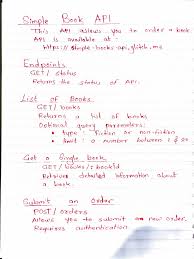 Simple Book API
This API allows you to order a book
API is available at
https://simple-books-api.glitch.me
Endpoints
GET/ status
Returns the status of API.
List of Books
GET/ books
Returns a list of books
Optional query parameters
• type : fiction or non-fiction
• limit : a number between 1 & 20
Get a Single book
GET/ books/:bookId
Retrieves detailed information about
a book.
Submit an Order
POST/ orders
Allows you to submit an new order.
Requires authentication